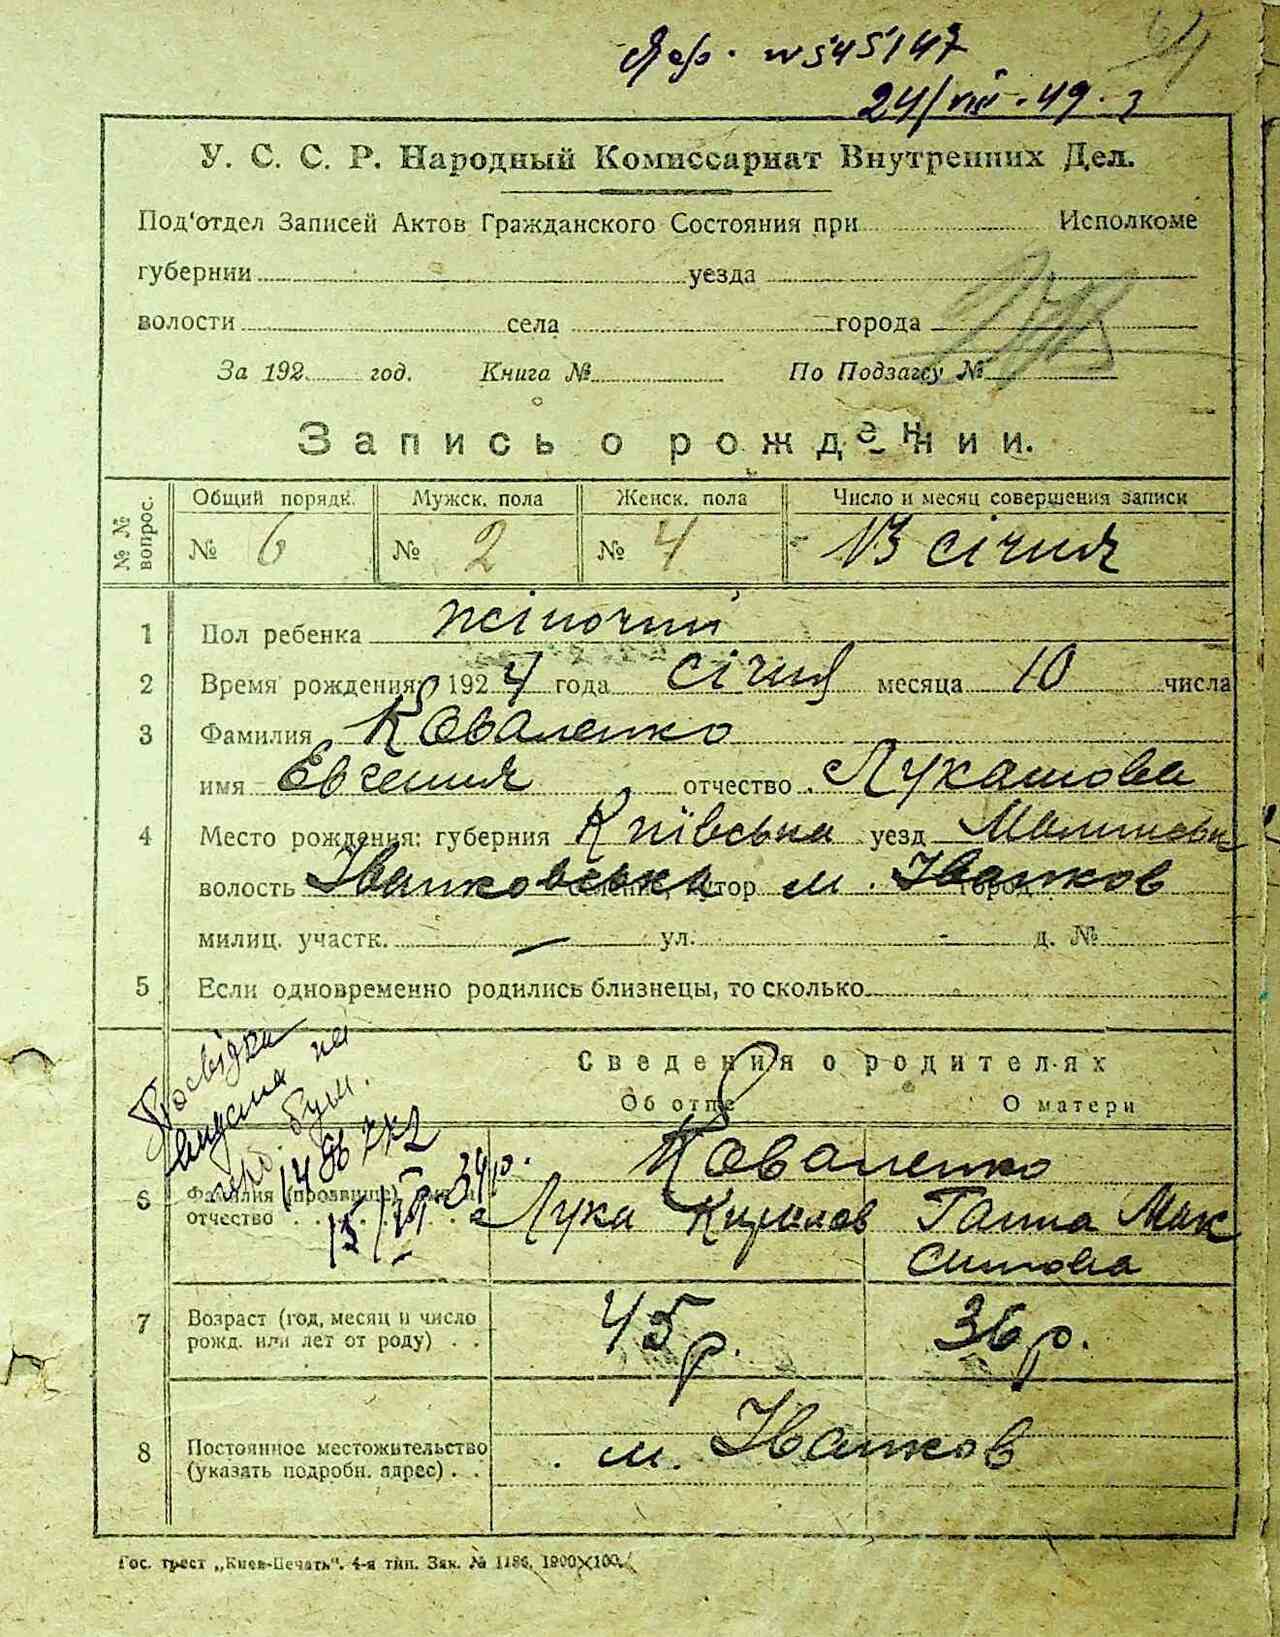 № 545147
24/VIII-49 г
У. С. С. Р. Народный Комиссариат Внутренних Дел.
Под'отдел Записей Актов Гражданского Состояния при Исполкоме
губернии уезда
волости села города
За 192 год. Книга № По Подзагсу №
Запись о рождении.
№ № вопрос.
Общий порядк. Мужск. пола Женск. пола Число и месяц совершения записи
№ 6 № 2 № 4 13 січня
1 Пол ребенка жіночий
2 Время рождения 1924 года січня месяца 10 числа
3 Фамилия Коваленко
имя Евгения отчество Лукашова
4 Место рождения: губерния Київська уезд
волость Іванковська хутор м. Іванков город
милиц. участк. — ул. - д. №
5 Если одновременно родились близнецы, то сколько
Сведения о родителях
Об отце О матери
Посвідка
видана на
буш.
15/IV-34 р.
Коваленко
6 Фамилия (прозвище) имя и
отчество Лука Кирилов Ганна Мак
симова
7 Возраст (год, месяц и число
рожд. или лет от роду) 45 р. 36 р.
8 Постоянное местожительство
(указать подробн. адрес) м. Іванков
Гос. трест „Киев-Печать“. 4-я тип. Зак. № 1186. 1900×100.